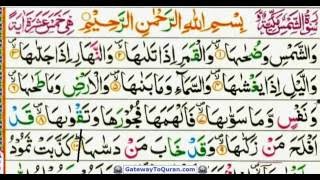 سورة الشمس مكية بسم الله الرحمن الرحيم وهي خمس عشرة اية
وَالشَّمْسِ وَضُحٰىهَا وَالْقَمَرِ اِذَا تَلٰىهَا وَالنَّهَارِ اِذَا جَلّٰىهَا
وَالَّيْلِ اِذَا يَغْشٰىهَا وَالسَّمَآءِ وَمَا بَنٰىهَا وَالْاَرْضِ وَمَا طَحٰىهَا
وَنَفْسٍ وَّمَا سَوّٰىهَا فَاَلْهَمَهَا فُجُوْرَهَا وَتَقْوٰىهَا قَدْ
اَفْلَحَ مَنْ زَكّٰىهَا وَقَدْ خَابَ مَنْ دَسّٰىهَا كَذَّبَتْ ثَمُوْدُ
GatewayToQuran.com